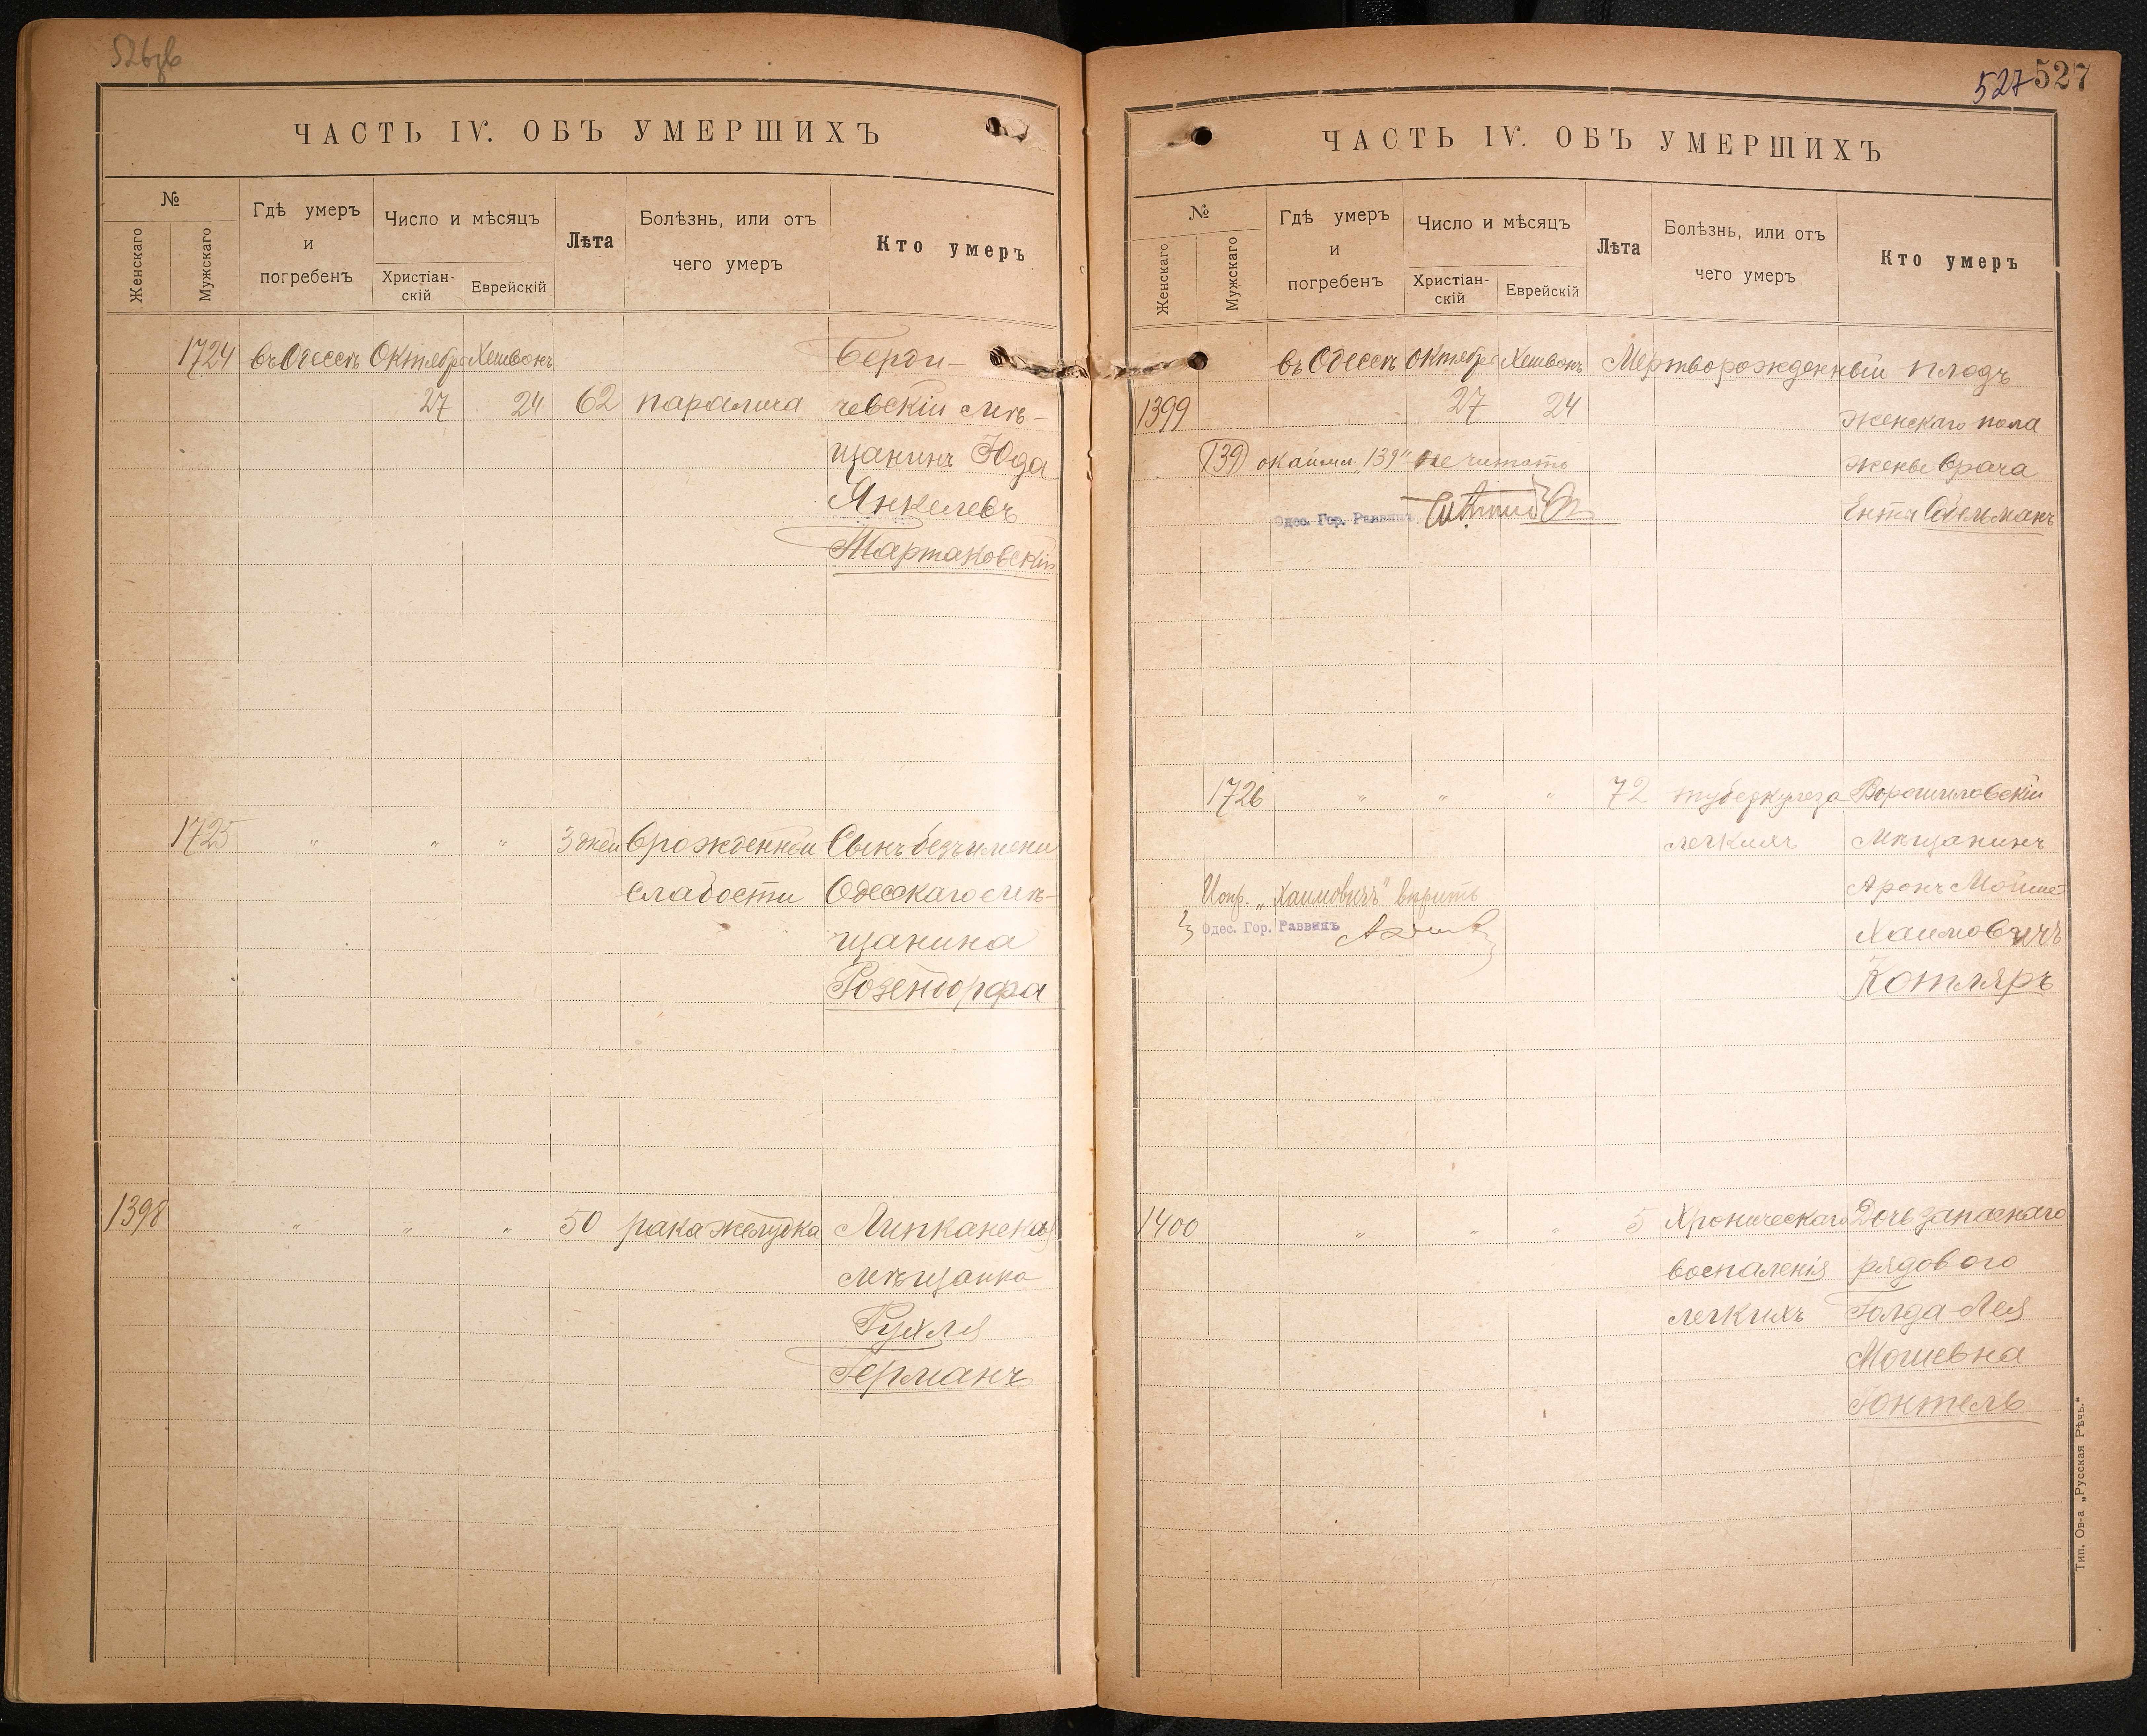 ЧАСТЬ IV. ОБЪ УМЕРШИХЪ
№
Женскаго
Мужскаго
Гдѣ умеръ
и
погребенъ
Число и мѣсяцъ
Христіан-
скій
Еврейскій
Лѣта
Болѣзнь, или отъ
чего умеръ
Кто умеръ
1724 въ Одессѣ Октября Хешвонъ Берди-
27 24 62 паралича чевскій мѣ-
щанинъ Юда
Янкелевъ
Тартаковскій
1725 " " " 3 дней врожденной Сынъ безъ имени
слабости Одесскаго мѣ-
щанина
Розендорфа
1398 " " " 50 рака желудка Липканская
мѣщанка
Рухля
Германъ
527 527
ЧАСТЬ IV. ОБЪ УМЕРШИХЪ
№
Женскаго
Мужскаго
Гдѣ умеръ
и
погребенъ
Число и мѣсяцъ
Христіан-
скій
Еврейскій
Лѣта
Болѣзнь, или отъ
чего умеръ
Кто умеръ
въ Одессѣ Октября Хешвонъ Мертворожденный плодъ
1399 27 24 женскаго пола
139 окаймл. „139" не читать жены врача
Одес. Гор. Раввинъ Ента
1726 " " " 72 туберкулеза Ворошиловскій
легкихъ Мѣщанинъ
Испр. „Хаимовичъ" вѣрить Аронъ Мойше
Одес. Гор. Раввинъ Хаимовичъ
Котляръ
1400 " " " 5 Хроническаго Дочь запаснаго
воспаленія рядового
легкихъ Голда-Лея
Мошевна
Гонтель
Тип. Ов-а „Русская Рѣчь."